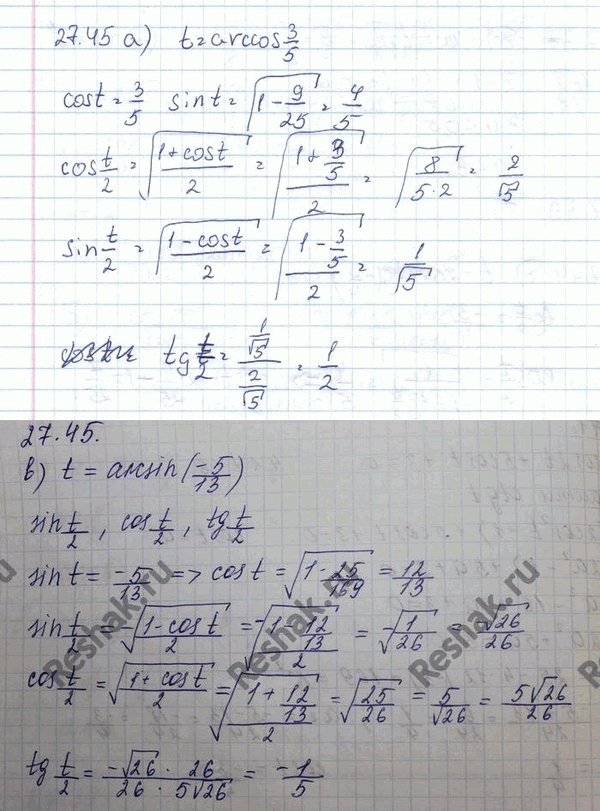 27.45 а) t=arccos 3/5
cost = 3/5 sint = √(1 - 9/25) = 4/5
cos t/2 = √((1+cost)/2) = √((1+3/5)/2) = √(8/(5·2)) = 2/√5
sin t/2 = √((1-cost)/2) = √((1-3/5)/2) = 1/√5
tg t/2 = (1/√5)/(2/√5) = 1/2
27.45.
в) t = arcsin(-5/13)
sin t/2, cos t/2, tg t/2
sin t = -5/13 => cos t = √(1 - 25/169) = 12/13
sin t/2 = -√((1-cos t)/2) = -√((1-12/13)/2) = -√(1/26) = -√26/26
cos t/2 = √((1+cos t)/2) = √((1+12/13)/2) = √(25/26) = 5/√26 = 5√26/26
tg t/2 = (-√26 · 26)/(26 · 5√26) = -1/5
Reshak.ru
Reshak.ru
Reshak.ru